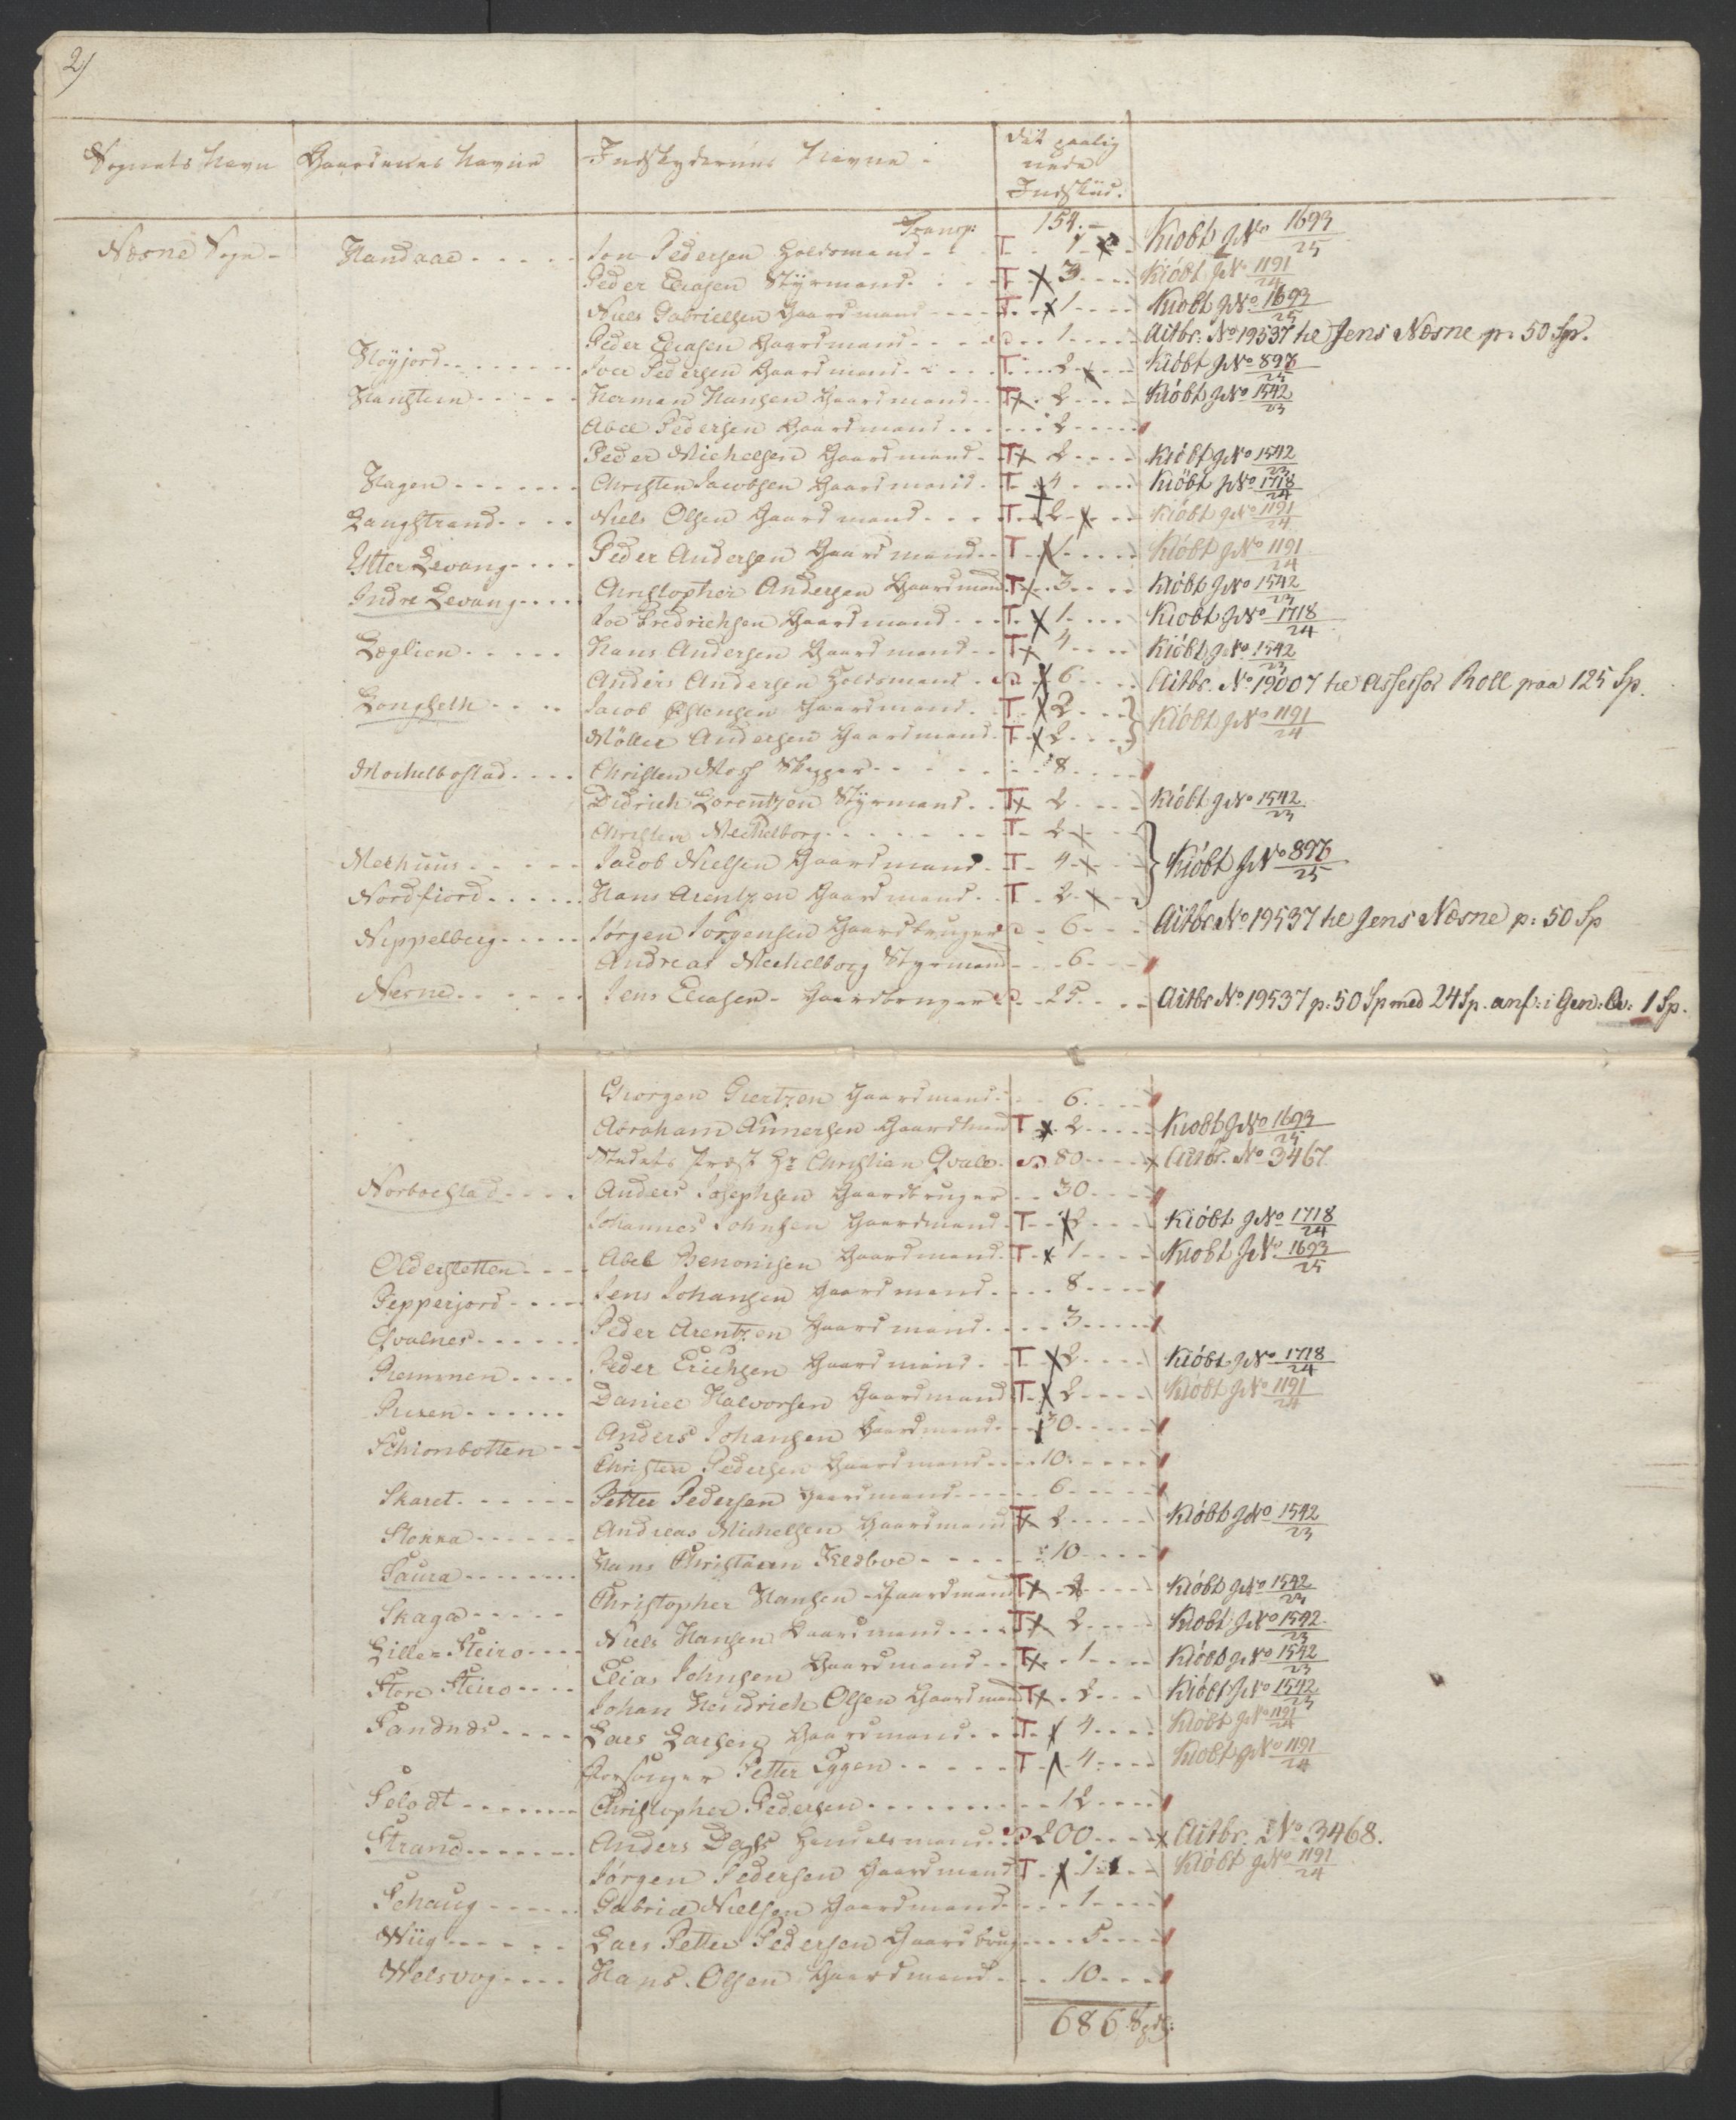 2)
Sognets Navn Gaardenes Navne Indskydernes Navne Det paalignede Indskud.
Transp: 154. -
Næsne Sogn - Handaae - - - - - Jon Pedersen Holdsmand - - T - 1 - x - Kiöbt J No 1693/25
Peder Eliasen Styrmand - - - T - x 3 - - - Kiöbt J No 1191/24
Niels Gabrielsen Gaardmand - - - - T - x 1 - - - Kiobt J No 1693/25
Peder Eliasen Gaardmand - - - - 1 - - - Actbr: No 19537 til Jens Næsne p: 50 Sp.
Höyjord - - - - - - Iver Pedersen Gaardmand - - - - T - - 2 - x - Kiöbt J No 898/25
Hanstein - - - - - Herman Hansen Gaardmand - - Tx - 2 - - - Kiöbt J No 1542/23
Abel Pedersen Gaardmand - - - - 2 - - -
Peder Michelsen Gaardmand - - Tx 2 - - - Kiöbt J No 1542/23
Hagen - - - - - - Christen Jacobsen Gaardmand - T - x 4 - - - Kiöbt J No 1718/24
Langstrand - - - - Niels Olsen Gaardmand - - - T - 2 - x - - Kiöbt J No 1191/24
Ytter Levang - - - - Peder Andersen Gaardmand - - T - x 1 - - - Kiöbt J No 1191/24
Indre Levang - - - - Christopher Andersen Gaardmand Tx - 3 - - - Kiöbt J No 1542/23
Joe Fredrichsen Gaardmand - - - T - x 1 - - - Kiobt J No 1718/24
Læglien - - - - - Hans Andersen Gaardmand - - Tx 4 - - - Kiöbt J No 1542/23
Anders Andersen Holdsmand - x 6 - - - Actbr. No 19007 til Assessor Roll paa 125 Sp.
Longseth - - - - Jacob Østensen Gaardmand - T - x 2 - - } Kiöbt J No 1191/24
Möller Andersen Gaardmand - T - x 2 - - }
Mochelbostad - - - - Christen Moss Skipper - - - - - 8 - - -
Didrich Lorentzen Styrmand - - Tx 2 - - - Kiöbt J No 1542/23
Christen Mechelborg - - - - - - T - 2 - x - - }
Mekhuus - - - - - Jacob Nielsen Gaardmand - T - 4 - x - - } Kiöbt J No 898/25
Nordfiord - - - - - - Hans Arentzen Gaardmand - - T - 2 - x - }
Neppelberg - - - - - Jørgen Jørgensen Gaardbruger - 6 - - - Actbr No 19537 til Jens Næsne p: 50 Sp
Andreas Mechelborg Styrmand - - - 6 - - -
Nesne - - - - - - Jens Eliasen - Gaardbruger - 25 - - - Actbr No 19537 p: 50 Sp med 24 Sp. anf: i Gen: Qv: 1 Sp.
Giertzen Gaardmand - - - 6 - - -
Abraham Gaardmand T - x 2 - - - - Kiobt J No 1693/25
Stedets Præst Hr Christian Qvale - 80 - - - x Actbr. No 3467
Norboestad - - - - Anders Josephsen Gaardbruger - - 30 - - -
Johannes Johnsen Gaardmand - T - - x 2 - - - Kiöbt J No 1718/24
Oldersletten - - - - Abel Benonisen Gaardmand - T - x 1 - - - Kiobt J No 1693/25
Pepperjord - - - - - Jens Johansen Gaardmand - - - - 8 - - -
Qvalnes - - - - - - Peder Arentzen Gaardmand - - - - 3 - - -
Remmen - - - - Peder Erichsen Gaardmand - - T - x 2 - - - Kiöbt J No 1718/24
Ruxen - - - - - - Daniel Halvorsen Gaardmand T - x 2 - - - Kiöbt J No 1191/24
Schionbotten - - Anders Johansen Gaardmand - - - 30 - - -
Christen Pedersen Gaardmand - - - - 10 - - -
Skaret - - - - - - Petter Pedersen Gaardmand - - - - 6 - - -
Stokka - - - - - - Andreas Michelsen Gaardmand Tx 2 - - - Kiöbt J No 1542/23
Saura - - - - - - - Hans Christian - - - - - 10 - - -
Skaga - - - - - Christopher Hansen - Gaardmand Tx - 2 - - - Kiöbt J No 1542/23
Lille-Steiro - - - - Niels Hansen Gaardmand - - - - Tx 2 - - - Kiobt J No 1542/23
Store Steiro - - - - Elias Johnsen Gaardmand - - Tx - 1 - - - Kiöbt J No 1542/23
Johan Hendrich Olsen Gaardmand Tx - 2 - - - Kiöbt J No 1542/23
Sandnæs - - - - Lars Larsen Gaardmand - - T - x 4 - - - Kiöbt J No 1191/24
Forsanger Petter Eggen - - - - - T - x - 4 - - - Kiobt J No 1191/24
Selodt - - - - - - - Christopher Pedersen - - - - - - - - 12 - - -
Strand - - - - - - - Anders Dass Handelsmand - 200 - - - x Actbr. No 3468.
Jørgen Pedersen Gaardmand T - x 1 - - - Kiöbt J No 1191/24
Schaug - - - - - - Gabriel Nielsen Gaardmand - - - - 1 - - -
Wiig - - - - - - Lars Petter Pedersen Gaardbrug - - - - 5 - - -
Welsvog - - - - Hans Olsen Gaardmand - - - 10 - - -
686 Spd: